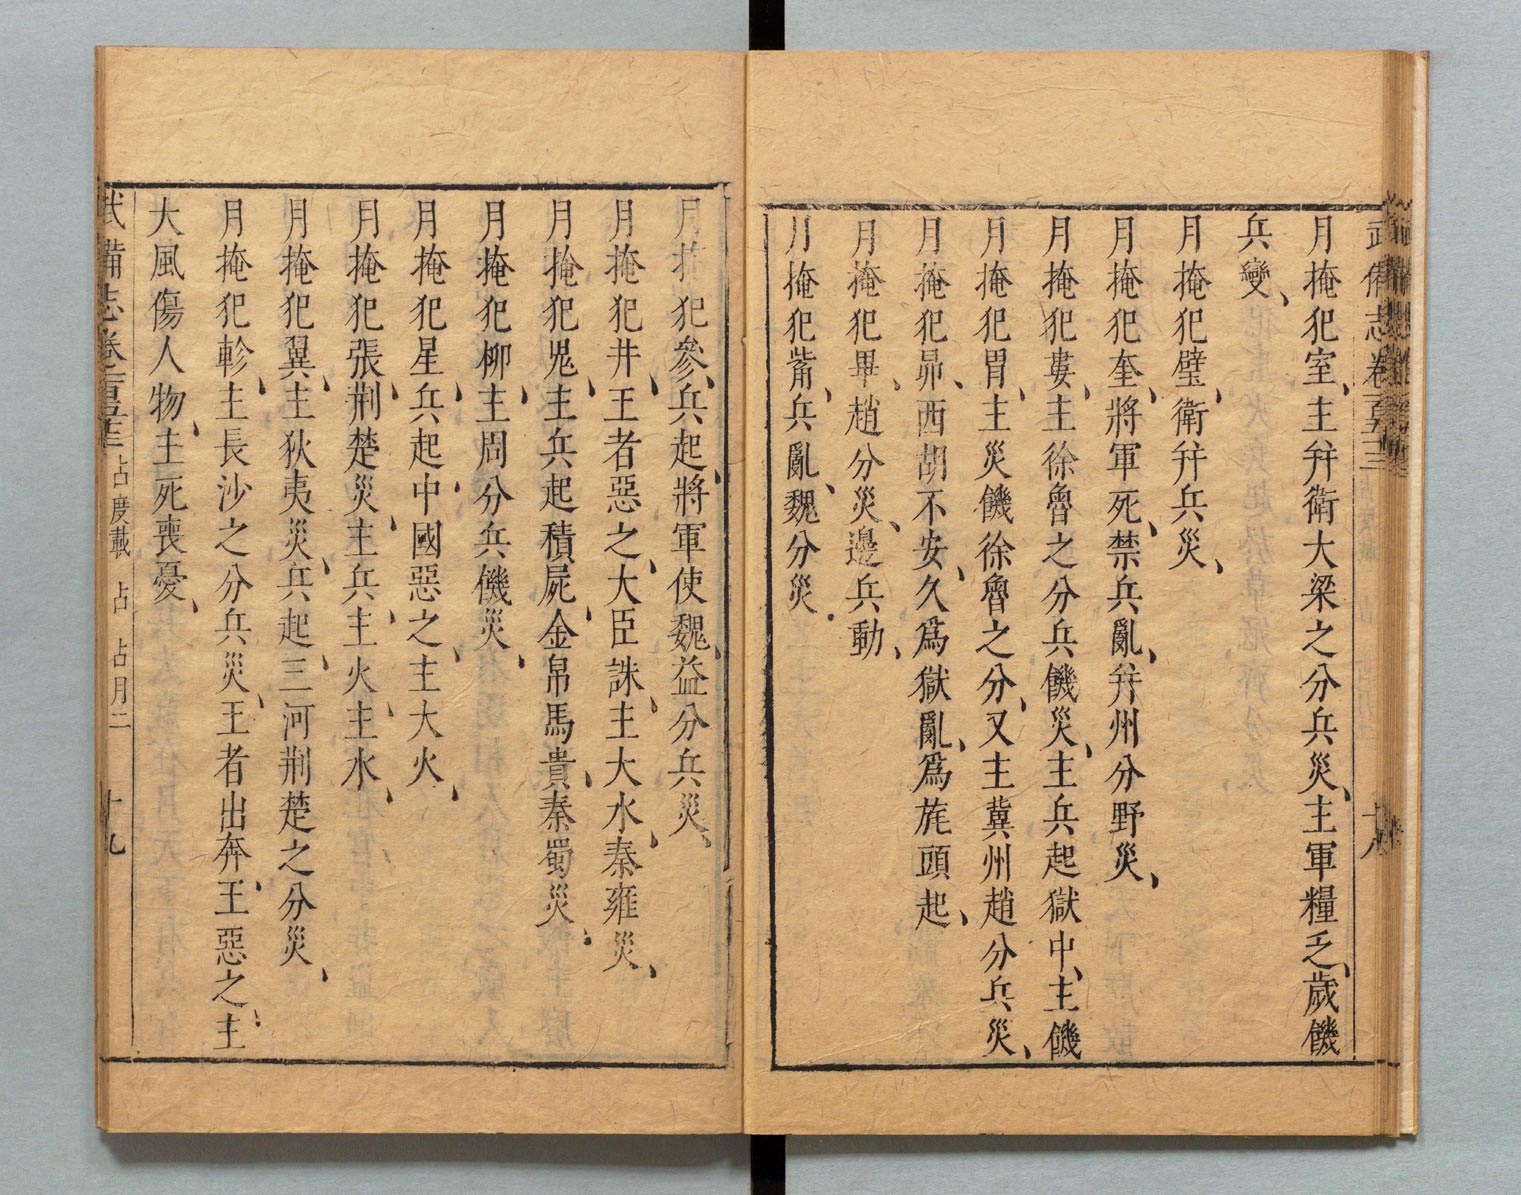 武備志卷一百五十三 十八
月掩犯室、主幷衛大梁之分兵災、主軍糧乏、歲饑
兵變、
月掩犯壁、衛幷兵災、
月掩犯奎、將軍死、禁兵亂、幷州分野災、
月掩犯婁、主徐魯之分兵饑災、主兵起獄中、主饑
月掩犯胃、主災饑徐魯之分、又主冀州趙分兵災、
月掩犯昴、西胡不安、久爲獄亂、爲旄頭起、
月掩犯畢、趙分災、邊兵動、
月掩犯觜、兵亂、魏分災、
月掩犯參、兵起、將軍使魏、益分兵災、
月掩犯井、王者惡之、大臣誅、主大水、秦雍災、
月掩犯鬼、主兵起積屍、金帛馬貴、秦蜀災、
月掩犯柳、主周分兵饑災、
月掩犯星、兵起、中國惡之、主大火、
月掩犯張、荆楚災、主兵、主火、主水、
月掩犯翼、主狄夷災、兵起、三河荆楚之分災、
月掩犯軫、主長沙之分兵災、王者出奔、王惡之、主
大風傷人物、主死喪憂、
武備志卷一百五十三 占度載 占 占月二 十九